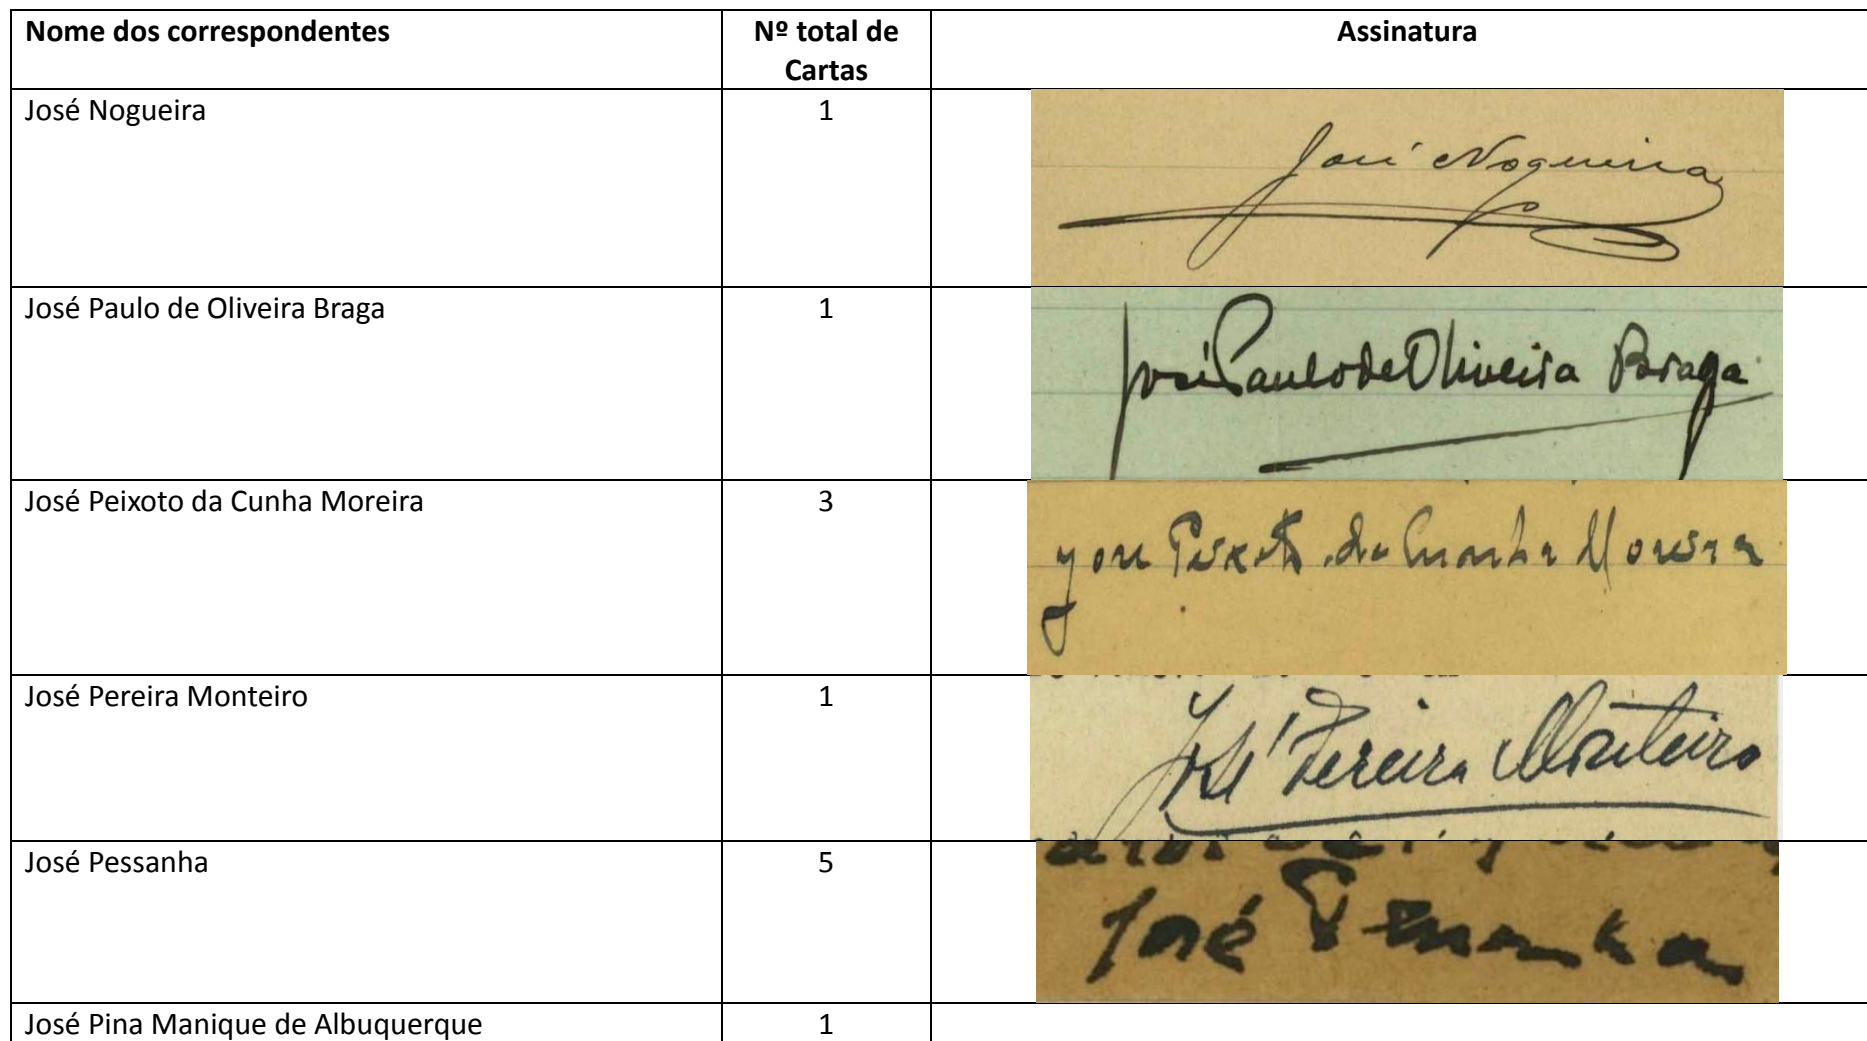 Nome dos correspondentes
Nº total de
Cartas
Assinatura
José Nogueira
1
José Nogueira
José Paulo de Oliveira Braga
1
José Paulo de Oliveira Braga
José Peixoto da Cunha Moreira
3
José Peixoto da Cunha Moreira
José Pereira Monteiro
1
José Pereira Monteiro
José Pessanha
5
José Pessanha
José Pina Manique de Albuquerque
1